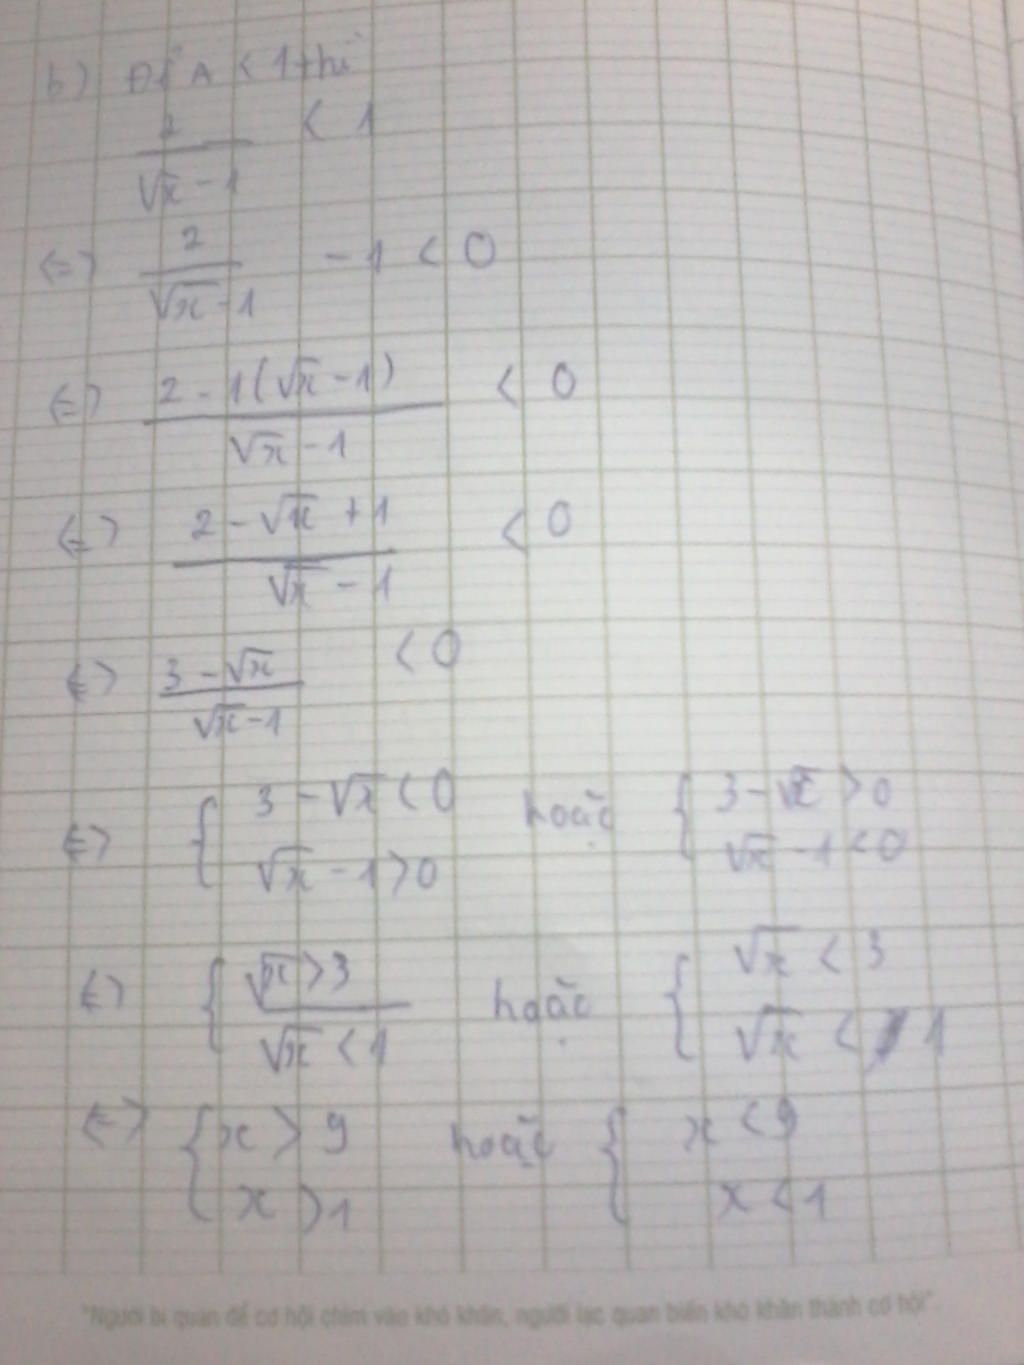 b) Để A < 1 thì
2/(√x - 1) < 1
<=> 2/(√x - 1) - 1 < 0
<=> (2 - 1(√x - 1))/(√x - 1) < 0
<=> (2 - √x + 1)/(√x - 1) < 0
<=> (3 - √x)/(√x - 1) < 0
<=> { 3 - √x < 0 hoặc { 3 - √x > 0
√x - 1 > 0 √x - 1 < 0
<=> { √x > 3 hoặc { √x < 3
√x < 1 √x < 1
<=> { x > 9 hoặc { x < 9
x > 1 x < 1
"Người bi quan để cơ hội chìm vào khó khăn, người lạc quan biến khó khăn thành cơ hội".